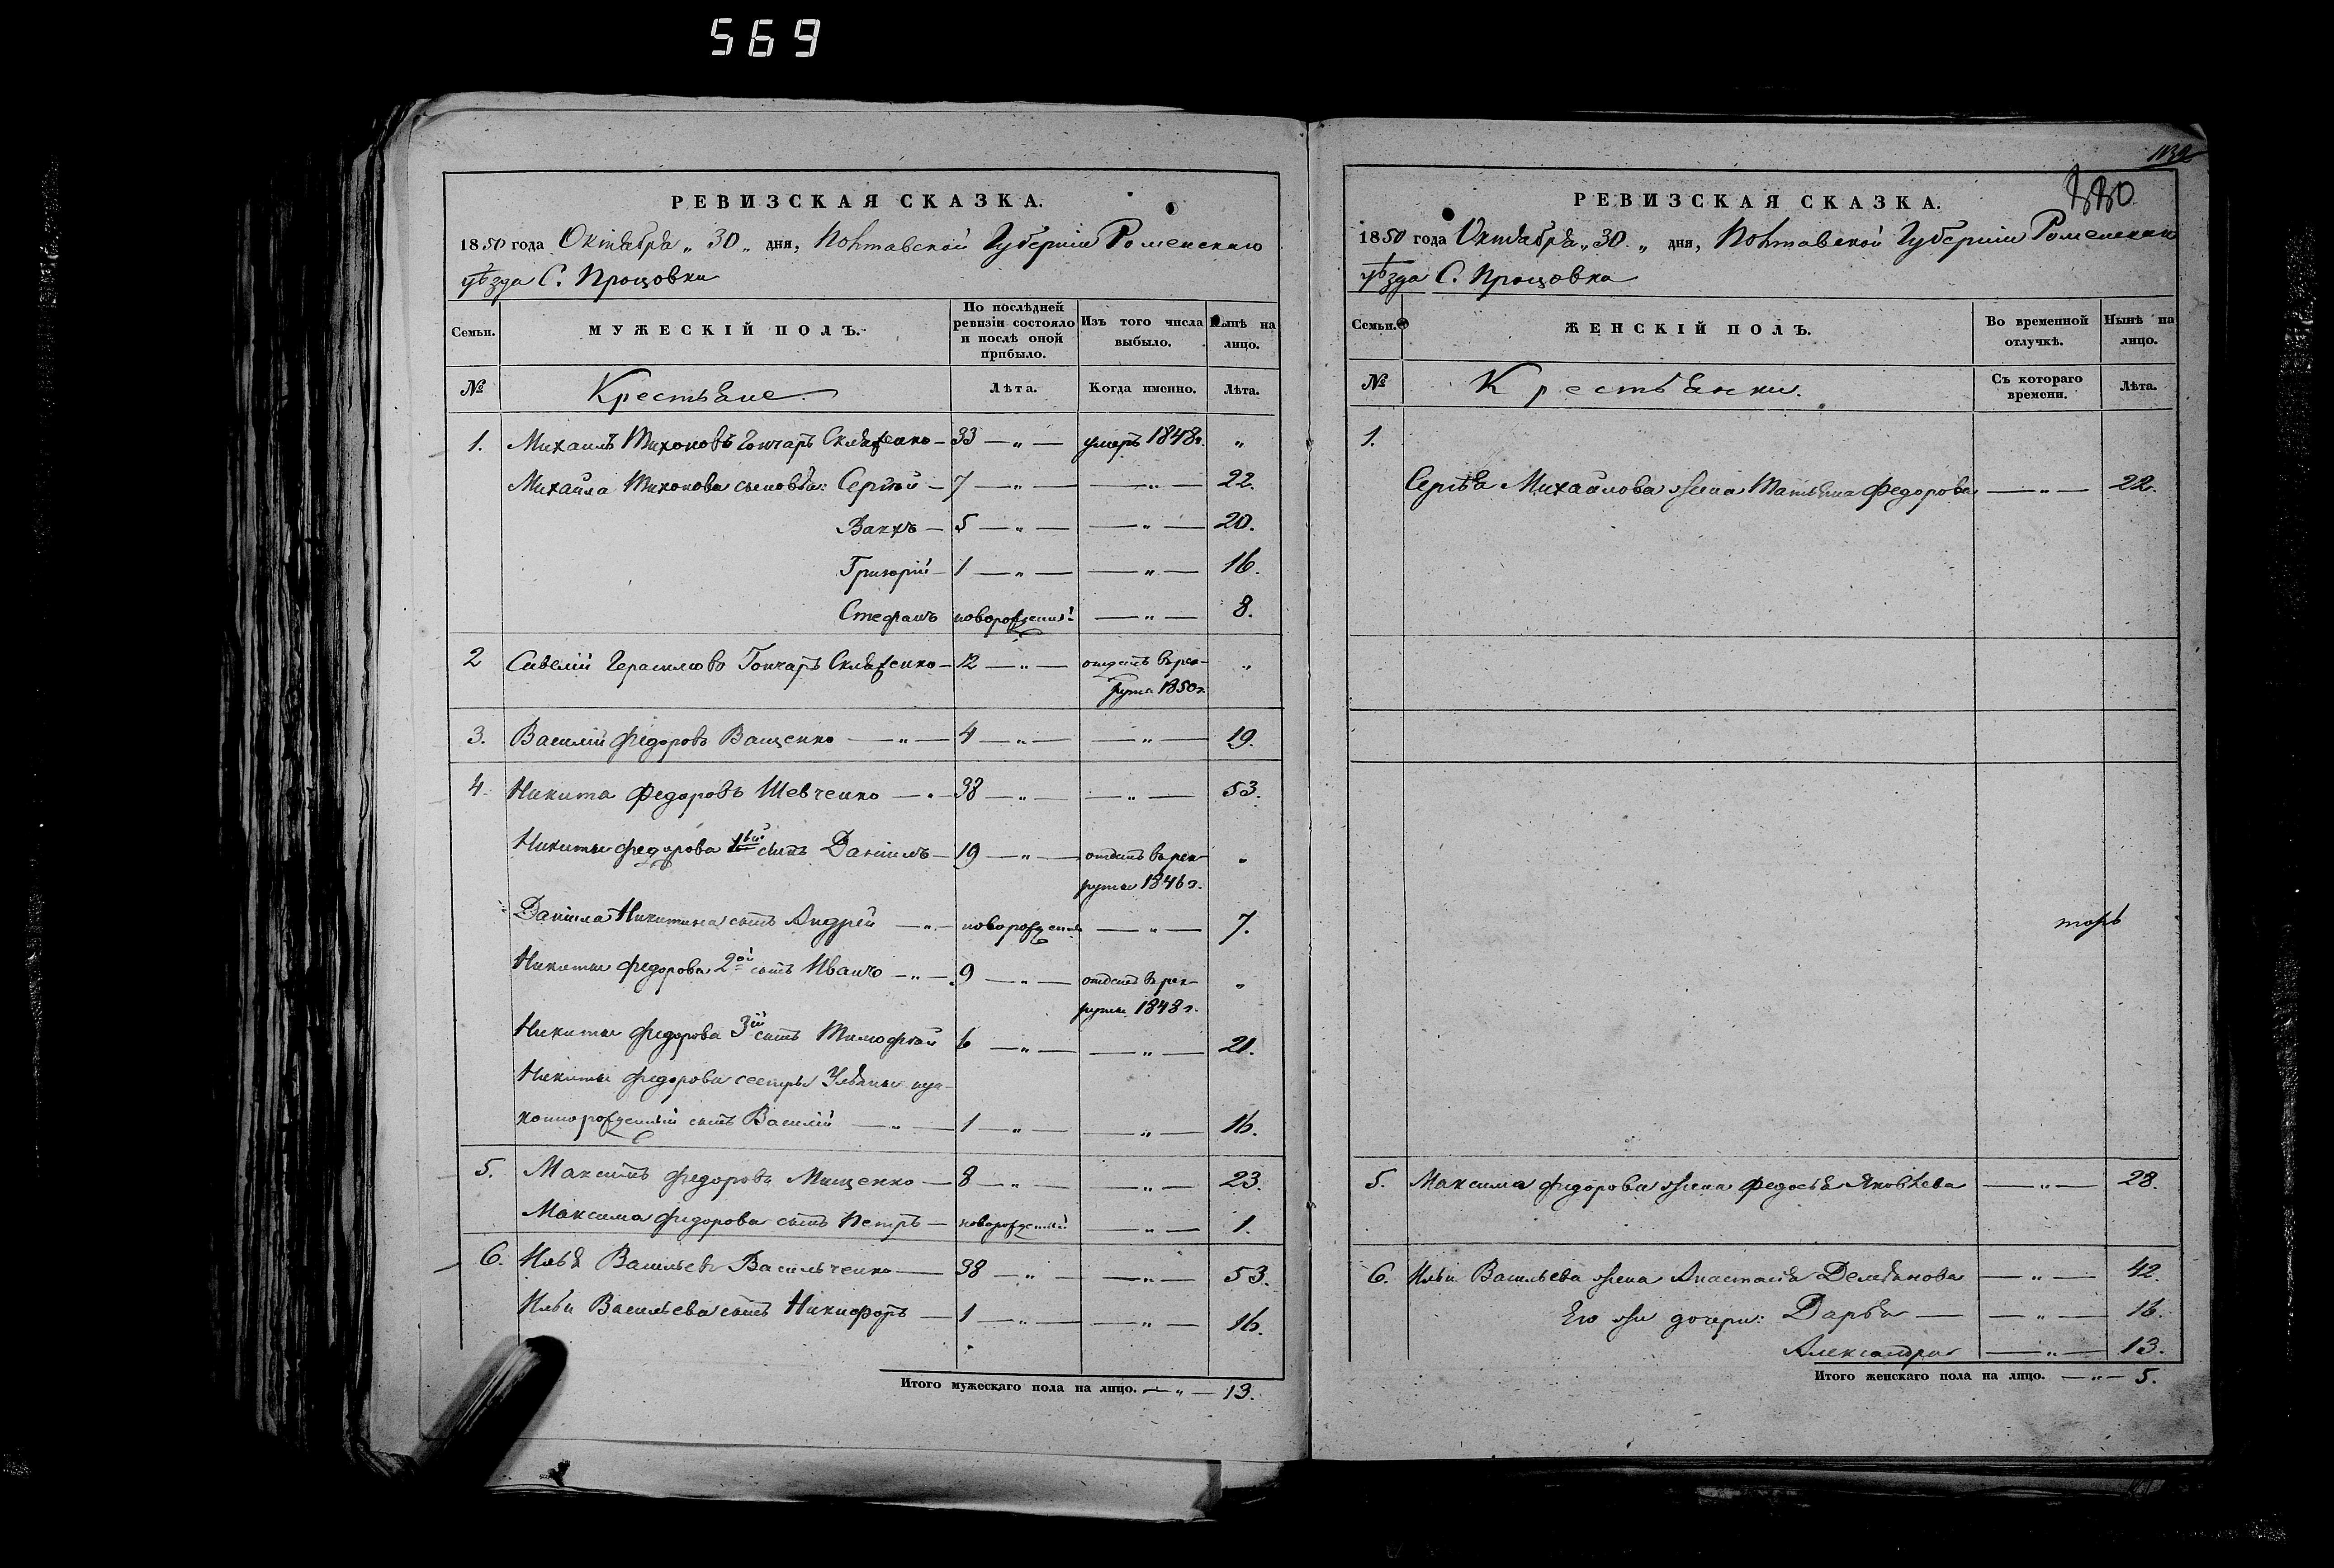 569
РЕВИЗСКАЯ СКАЗКА.
1850 года Октября „ 30 „ дня, Полтавской Губерніи Роменскаго
уѣзда С. Процовки
Семьи. МУЖЕСКІЙ ПОЛЪ. По послѣдней ревизіи состояло и послѣ оной прибыло. Изъ того числа выбыло. Нынѣ на лицо.
№ Крестьяне. Лѣта. Когда именно. Лѣта.
1. Михаилъ Тихоновъ Гончаръ Скляренко — 33 — „ — умеръ 1848г. „
Михайла Тихонова сыновья: Сергѣй — 7 — „ — — „ — 22.
Вакхъ — 5 — „ — — „ — 20.
Григорій — 1 — „ — — „ — 16.
Стефанъ новорожденный — „ — 8.
2 Савелій Герасимовъ Гончаръ Скляренко — 12 — „ — отданъ въ рек-
руты 1850г. „
3. Василій Федоровъ Ващенко — „ — 4 — „ — — „ — 19.
4. Никита Федоровъ Шевченко — „ — 38 — „ — — „ — 53.
Никиты Федорова 1ый сынъ Даніилъ — 19 — „ — отданъ въ рек-
руты 1846г. „
Даніила Никитина сынъ Андрей — „ — новорожденный — „ — 7.
Никиты Федорова 2ой сынъ Иванъ — „ — 9 — „ — отданъ въ рек-
руты 1848г. „
Никиты Федорова 3ій сынъ Тимофѣй 6 — „ — — „ — 21.
Никиты Федорова сестры Ульяны неза-
коннорожденный сынъ Василій — „ — 1 — „ — — „ — 16.
5. Максимъ Федоровъ Мищенко — 8 — „ — — „ — 23.
Максима Федорова сынъ Петръ — новорожденный — „ — 1.
6. Илья Васильевъ Васильченко — 38 — „ — — „ — 53.
Ильи Васильева сынъ Никифоръ — 1 — „ — — „ — 16.
Итого мужескаго пола на лицо. — „ — 13.
РЕВИЗСКАЯ СКАЗКА.
1850 года Октября „ 30 „ дня, Полтавской Губерніи Роменскаго
уѣзда С. Процовка
Семьи. ЖЕНСКІЙ ПОЛЪ. Во временной отлучкѣ. Нынѣ на лицо.
№ Крестьянки. Съ котораго времени. Лѣта.
1.
Сергѣя Михайлова жена Татьяна Федорова — „ — 22.
5. Максима Федорова жена Федосья Яковлева — „ — 28.
6. Ильи Васильева жена Анастасія Демьянова — „ — 42.
Его же дочери: Дарья — — „ — 16.
Александра — „ — 13.
Итого женскаго пола на лицо. — „ — 5.